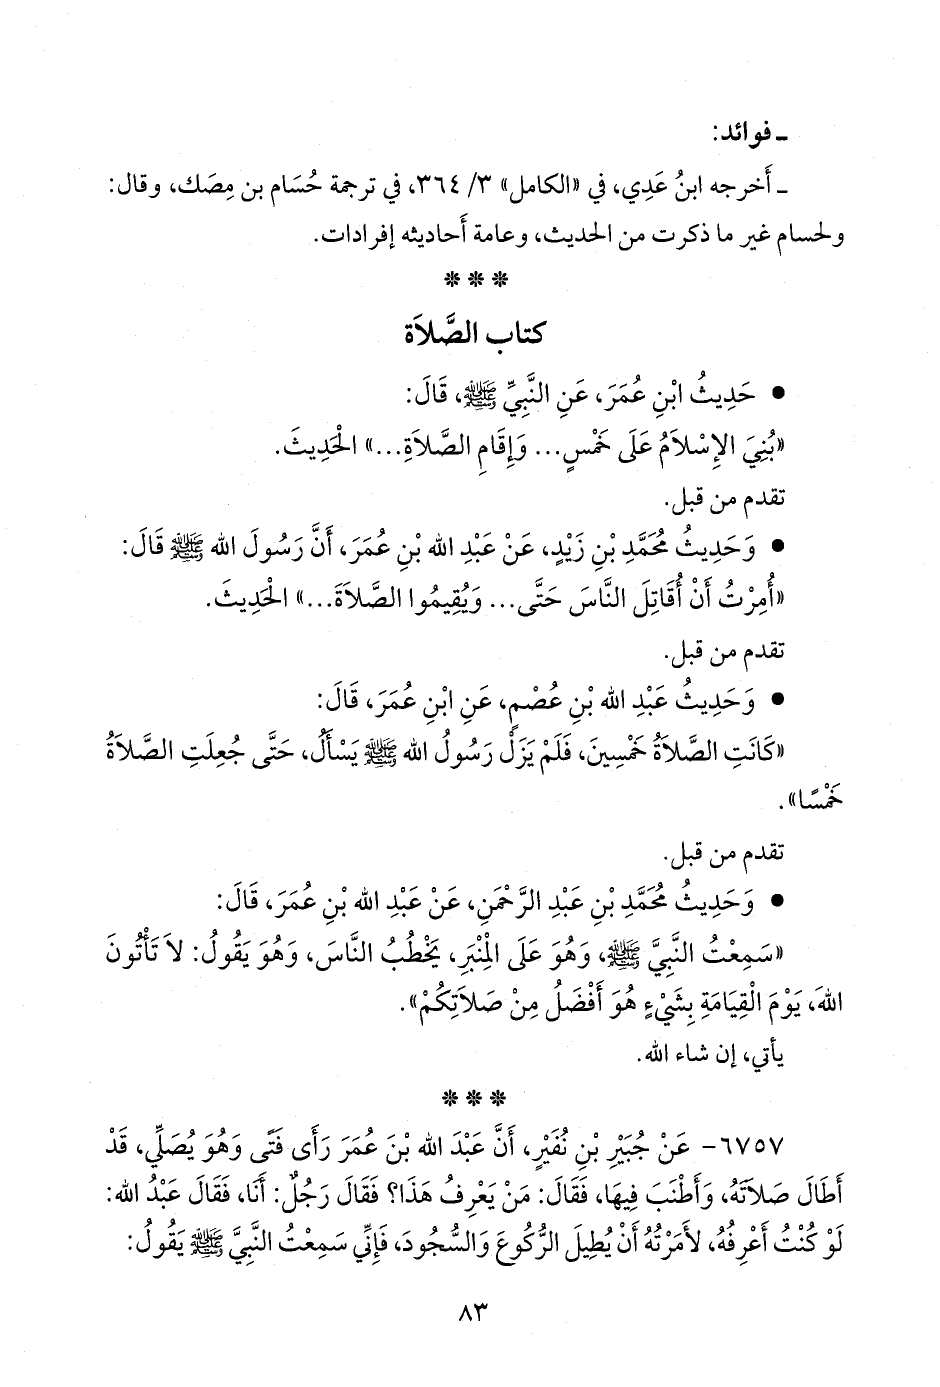 ـ فوائد:
ـ أَخرجه ابنُ عَدِي، في «الكامل» ٣/ ٣٦٤، في ترجمة حُسَام بن مِصَك، وقال:
ولحسام غير ما ذكرت من الحديث، وعامة أَحاديثه إِفرادات.
* * *
كتاب الصَّلاَة
• حَدِيثُ ابْنِ عُمَرَ، عَنِ النَّبِيِّ ﷺ، قَالَ:
«بُنِيَ الإِسْلاَمُ عَلَى خَمْسٍ... وَإِقَامِ الصَّلاَةِ...» الْحَدِيثَ.
تقدم من قبل.
• وَحَدِيثُ مُحَمَّدِ بْنِ زَيْدٍ، عَنْ عَبْدِ الله بْنِ عُمَرَ، أَنَّ رَسُولَ الله ﷺ قَالَ:
«أُمِرْتُ أَنْ أُقَاتِلَ النَّاسَ حَتَّى... وَيُقِيمُوا الصَّلاَةَ...» الْحَدِيثَ.
تقدم من قبل.
• وَحَدِيثُ عَبْدِ الله بْنِ عُصْمٍ، عَنِ ابْنِ عُمَرَ، قَالَ:
«كَانَتِ الصَّلاَةُ خَمْسِينَ، فَلَمْ يَزَلْ رَسُولُ الله ﷺ يَسْأَلُ، حَتَّى جُعِلَتِ الصَّلاَةُ
خَمْسًا».
تقدم من قبل.
• وَحَدِيثُ مُحَمَّدِ بْنِ عَبْدِ الرَّحْمَنِ، عَنْ عَبْدِ الله بْنِ عُمَرَ، قَالَ:
«سَمِعْتُ النَّبِيَّ ﷺ، وَهُوَ عَلَى الْمِنْبَرِ، يَخْطُبُ النَّاسَ، وَهُوَ يَقُولُ: لاَ تَأْتُونَ
اللهَ، يَوْمَ الْقِيَامَةِ بِشَيْءٍ هُوَ أَفْضَلُ مِنْ صَلاَتِكُمْ».
يأتي، إن شاء الله.
* * *
٦٧٥٧- عَنْ جُبَيْرِ بْنِ نُفَيْرٍ، أَنَّ عَبْدَ الله بْنَ عُمَرَ رَأَى فَتًى وَهُوَ يُصَلِّي، قَدْ
أَطَالَ صَلاَتَهُ، وَأَطْنَبَ فِيهَا، فَقَالَ: مَنْ يَعْرِفُ هَذَا؟ فَقَالَ رَجُلٌ: أَنَا، فَقَالَ عَبْدُ الله:
لَوْ كُنْتُ أَعْرِفُهُ، لأَمَرْتُهُ أَنْ يُطِيلَ الرُّكُوعَ وَالسُّجُودَ، فَإِنِّي سَمِعْتُ النَّبِيَّ ﷺ يَقُولُ:
٨٣